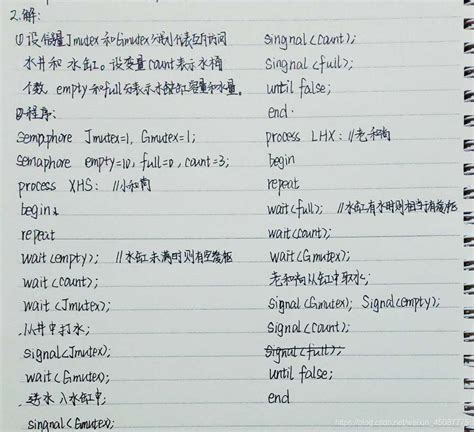 2.解:
(1)设信号量Jmutex和Gmutex分别代表互斥访问
水井和水缸。设变量count表示水桶
个数 empty和full分表示水缸容量和水量。
(2)程序:
semaphore Jmutex=1, Gmutex=1;
semaphore empty=10, full=0, count=3;
process XHS: //小和尚
begin:
repeat
wait(empty); //水缸未满时则有空缓柜
wait(count);
wait(Jmutex);
从井中打水;
signal(Jmutex);
wait(Gmutex);
送水入水缸中;
singnal(Gmutex);
singnal(count);
singnal(full);
until false;
end.
process LHX: //老和尚
begin
repeat
wait(full); //水缸有水时则相当有缓柜
wait(count);
wait(Gmutex);
老和尚从缸中取水;
Signal(Gmutex); Signal(empty);
signal(count);
signal(full);
until false;
end